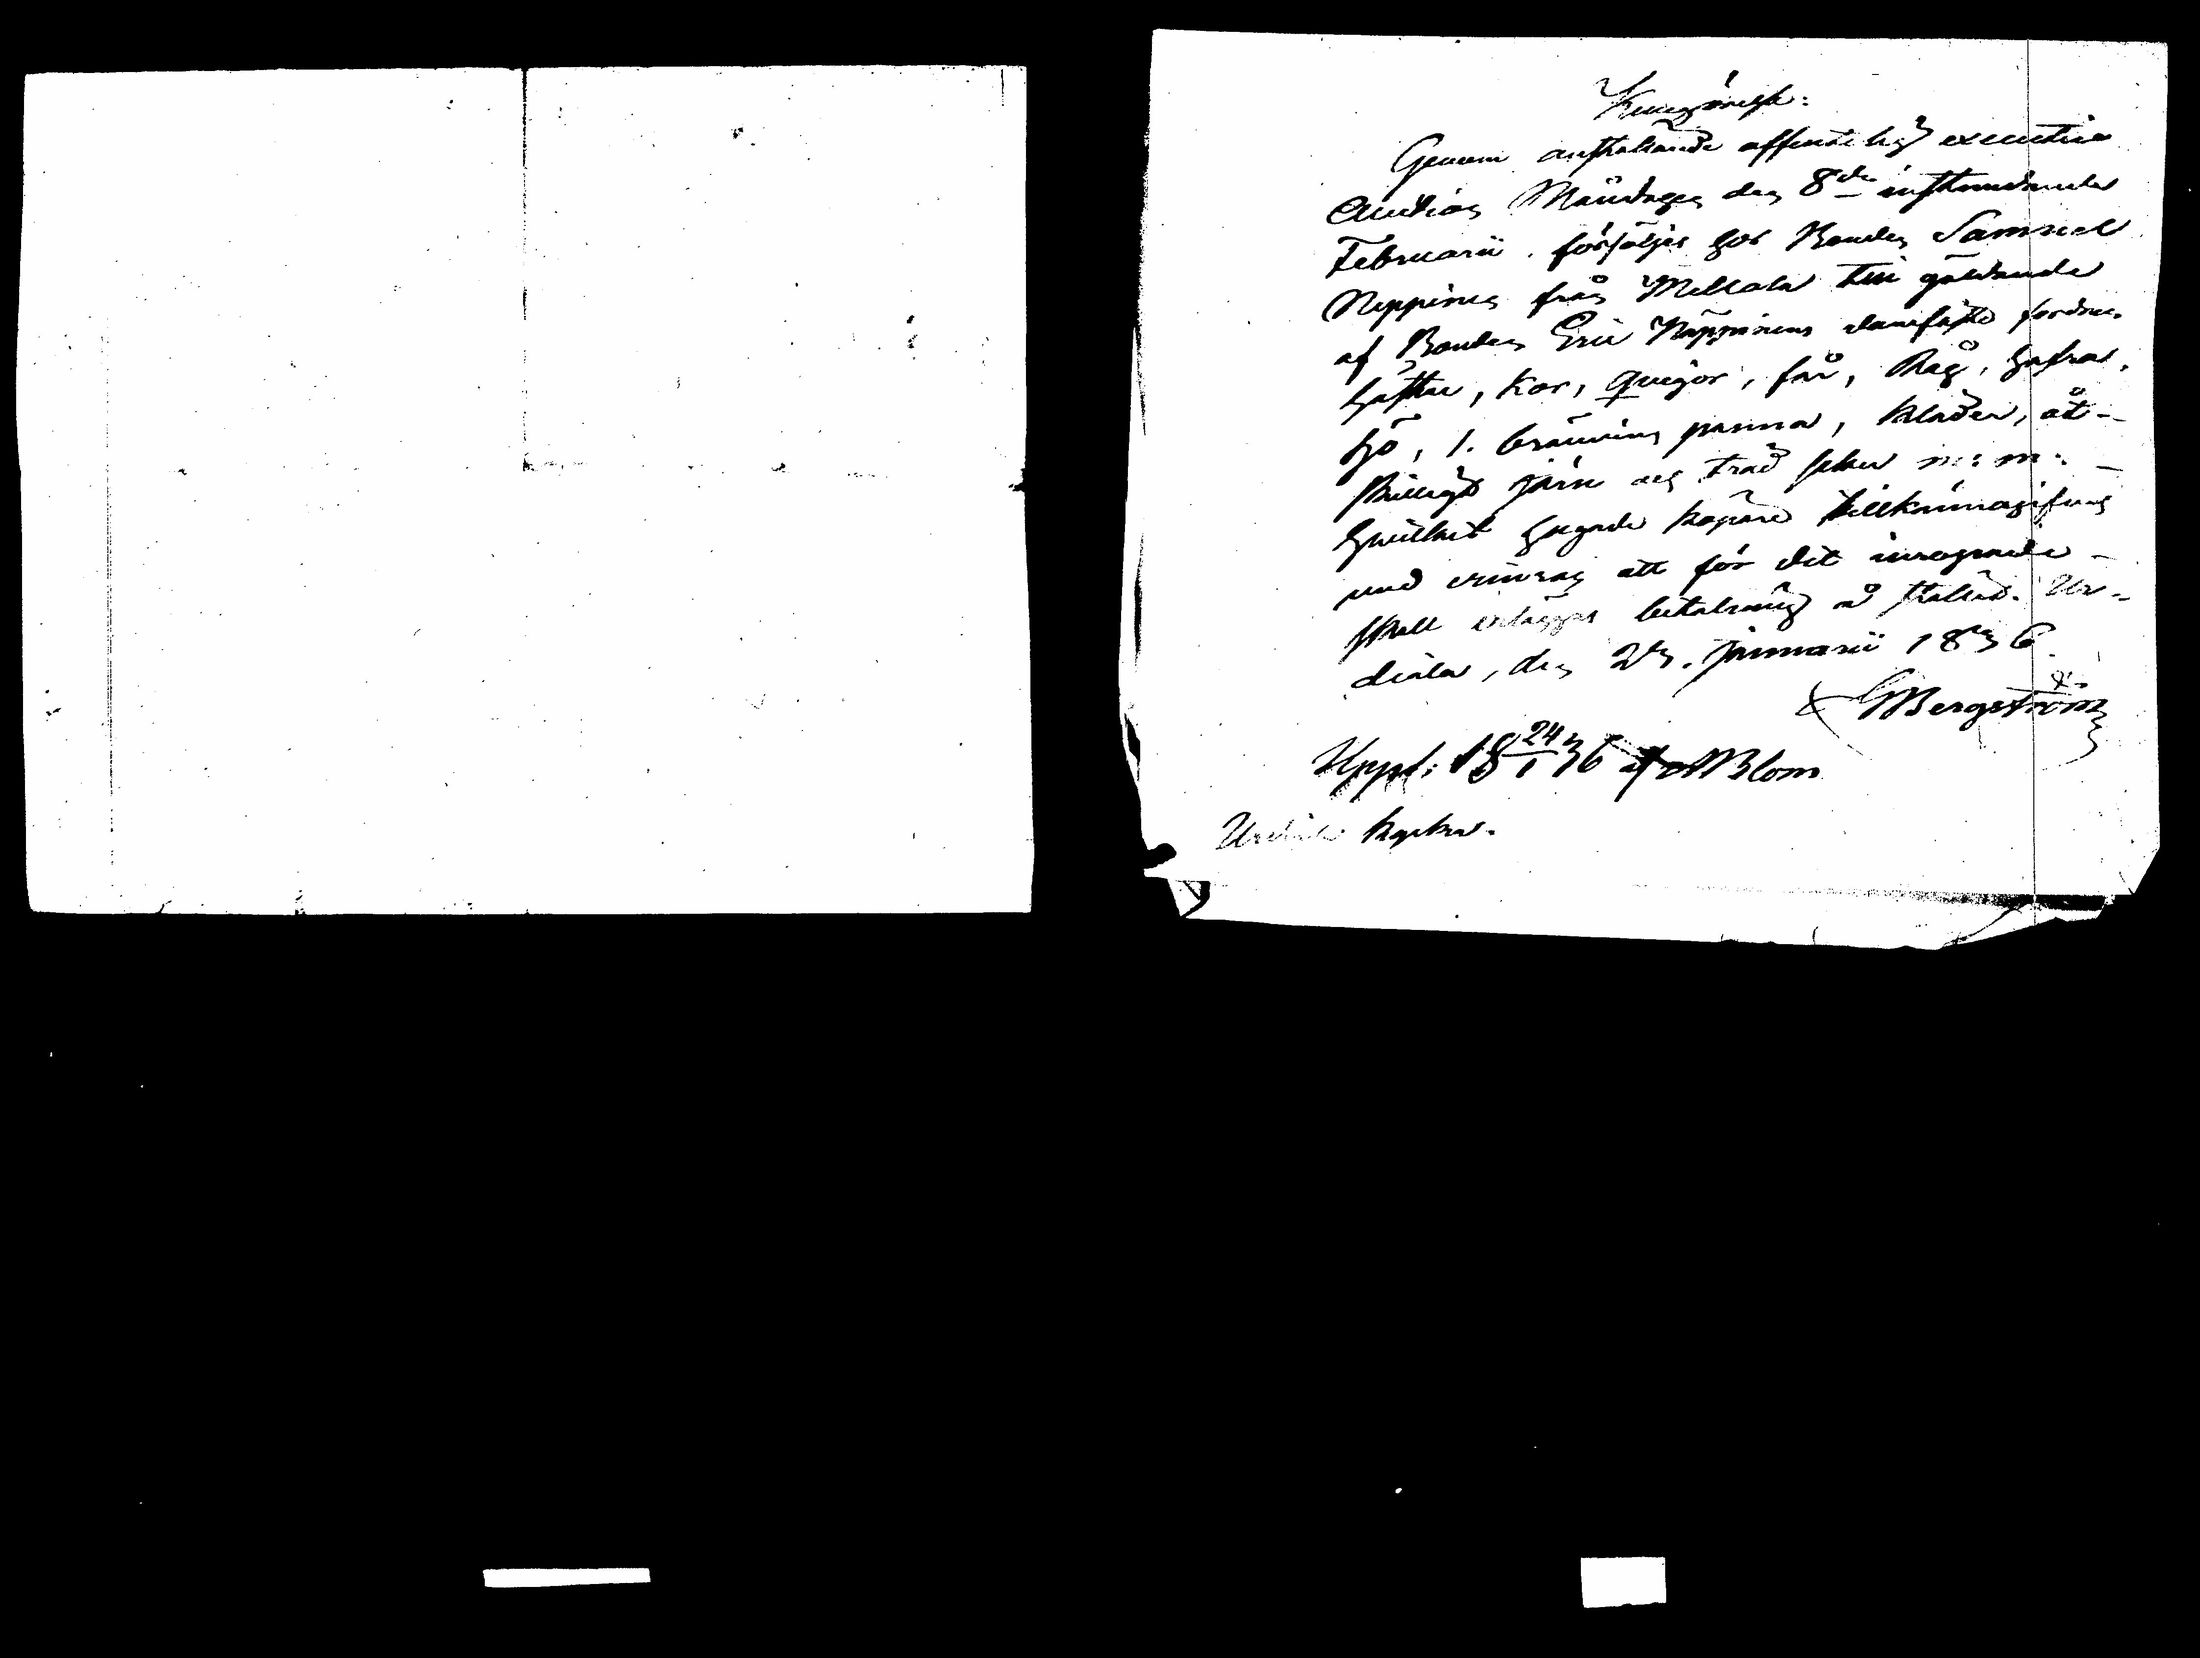 Kungörelse:
Genom anställande offentelig executive
Auction Måndagen den 8de instundande
Februarii försäljes hos Bonden Samuel
Neppinen från Mellola till gäldande
af Bonden Eric Näppinens domfäste fordran
hästar, Kor, qvigor, får, Råg, hafra,
hö, 1. bränvins panna, kläder, åt-
skilligt järn och träd saker m: m:
hwilket hugade köpare tillkännagifves
med erinran att för det inropade
skall erlägges betalning å stället. Ur-
diala, den 23. Januarii 1836.
Bergström
Uppl: 18 24/1 36 af Blom
Urdiala kyrka.